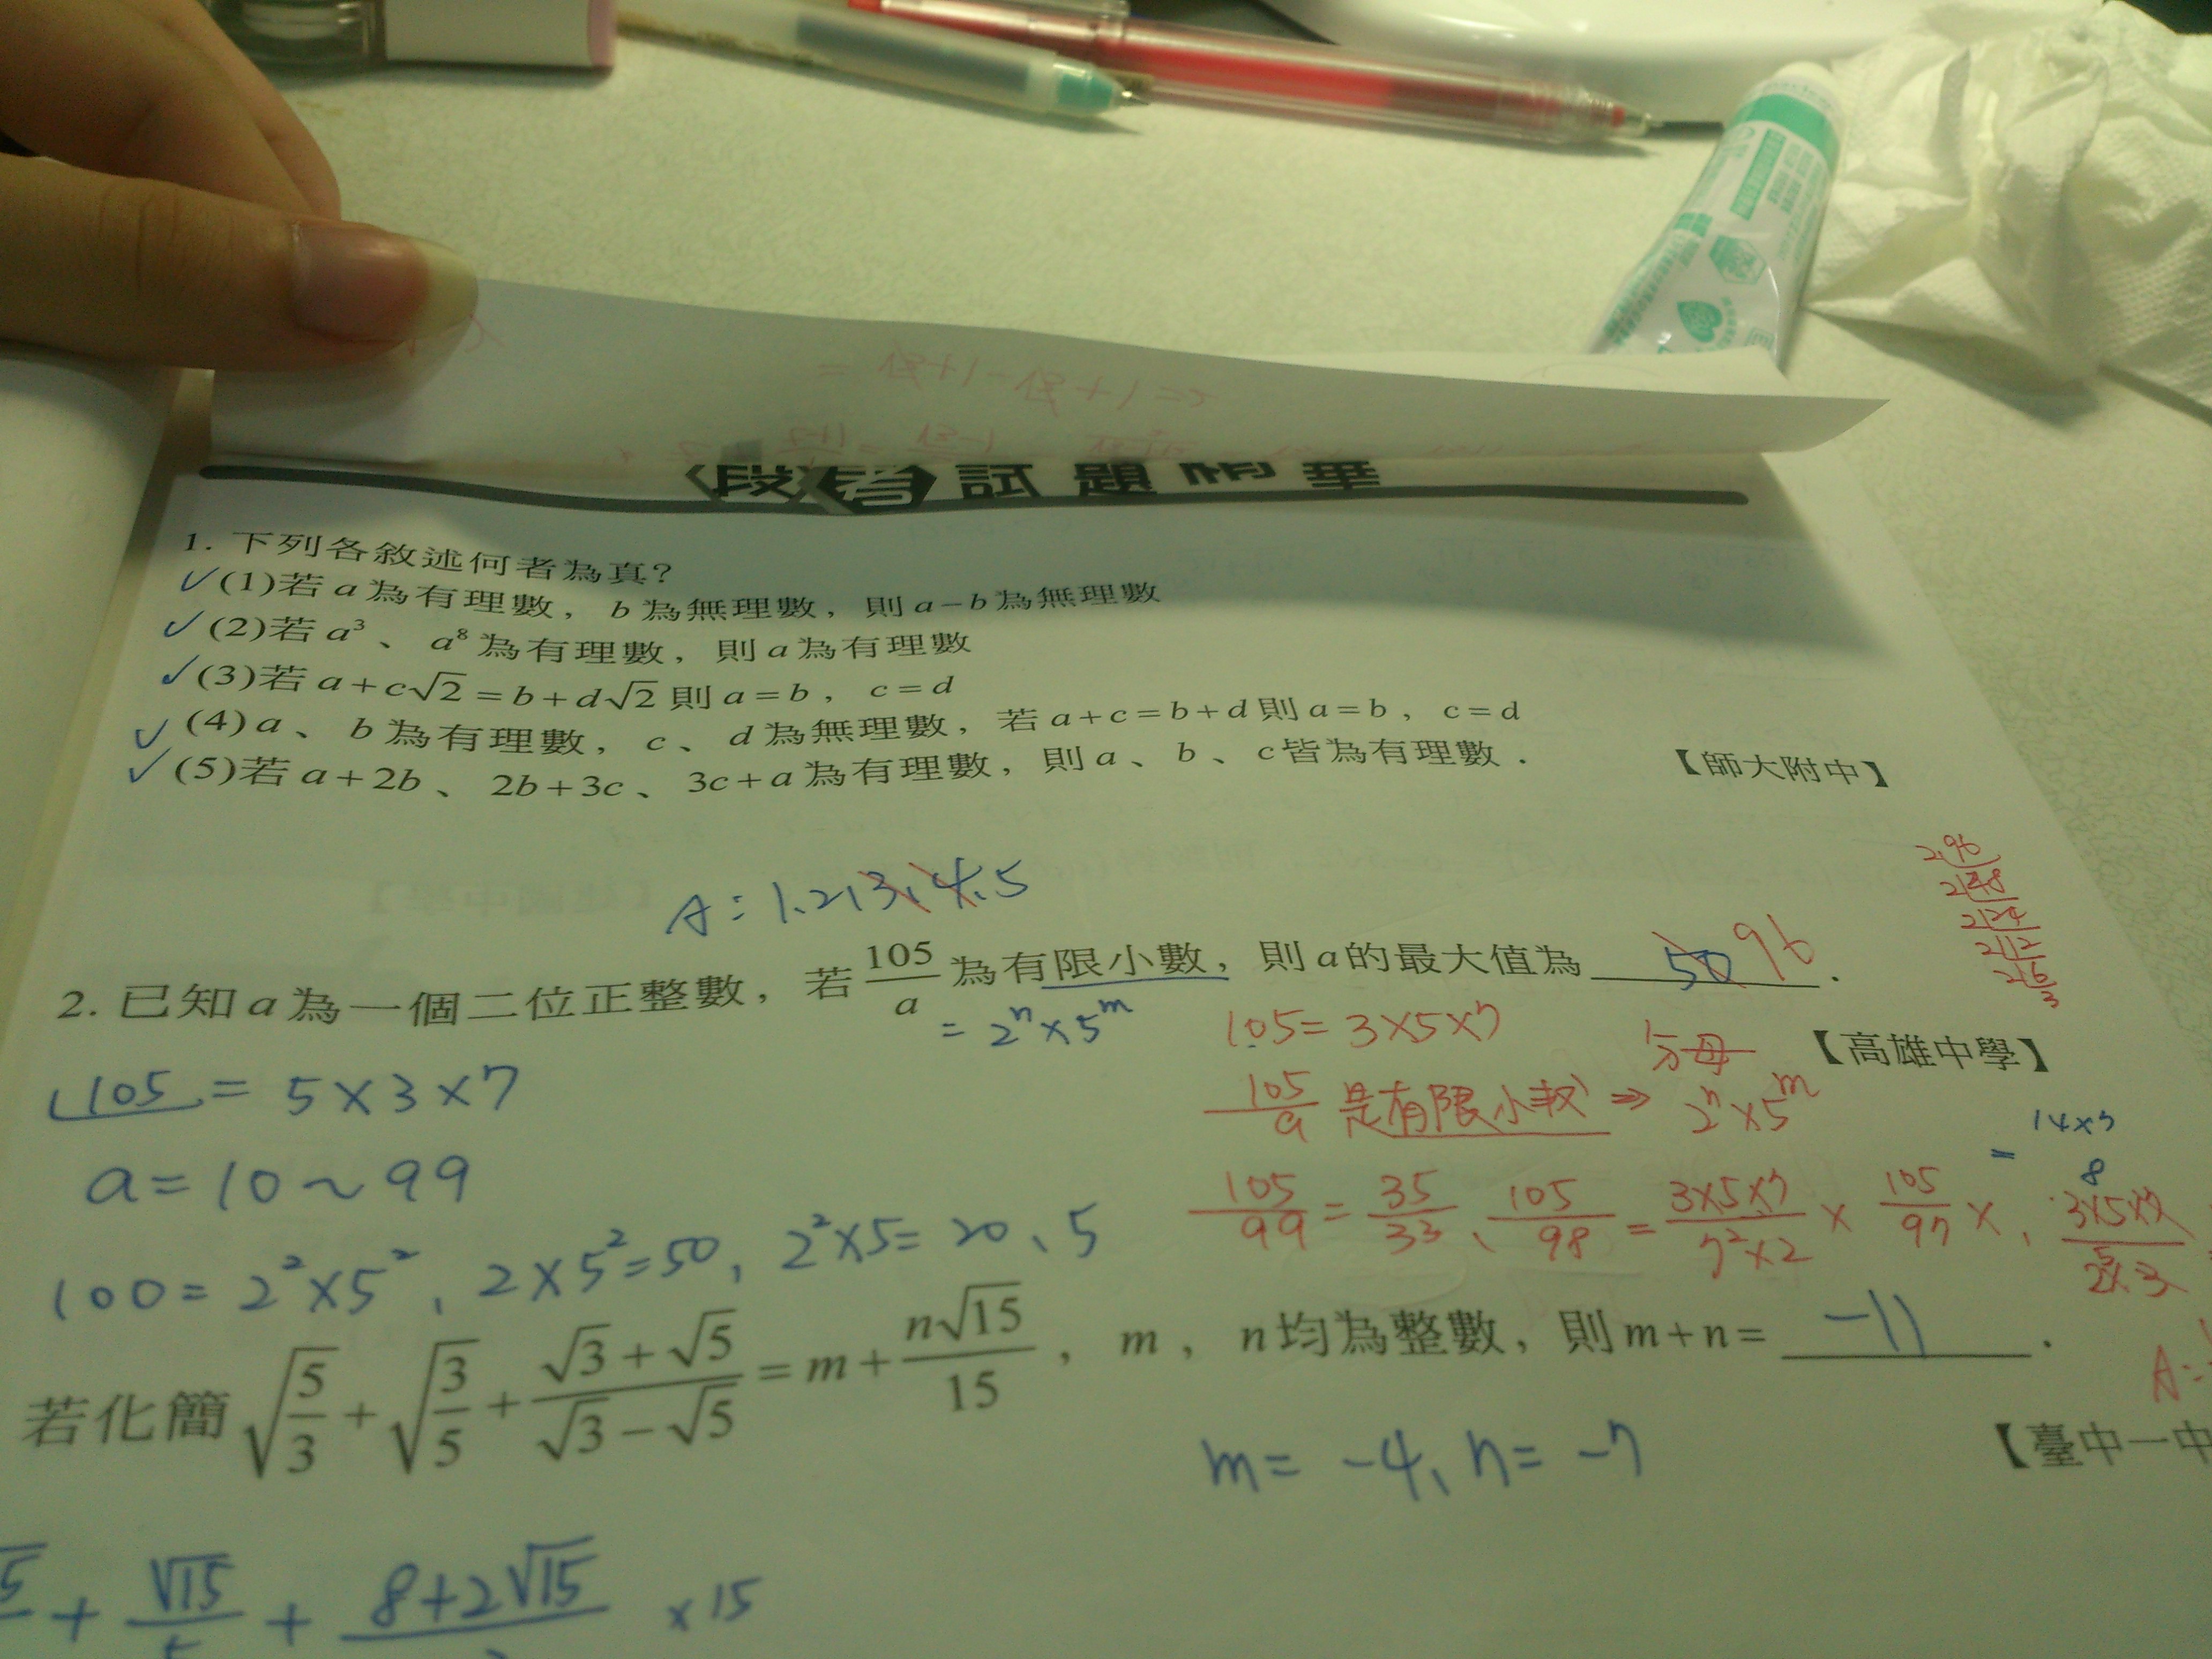 段考試題精華
1. 下列各敘述何者為真?
✓(1)若 a 為有理數，b 為無理數，則 a−b 為無理數
✓(2)若 a³、a⁸ 為有理數，則 a 為有理數
✓(3)若 a+c√2=b+d√2 則 a=b，c=d
✓(4)a、b 為有理數，c、d 為無理數，若 a+c=b+d 則 a=b，c=d
✓(5)若 a+2b、2b+3c、3c+a 為有理數，則 a、b、c 皆為有理數．
【師大附中】
A：1.2.3.4.5
2 96
2 48
2 24
2 12
2 6
3
2. 已知 a 為一個二位正整數，若 105/a 為有限小數，則 a 的最大值為 50 96．
= 2ⁿ×5ᵐ
【高雄中學】
105 = 5×3×7
a = 10~99
100 = 2²×5²、2×5²=50, 2²×5=20、5
105 = 3×5×7
105/a 是有限小数 ⇒ 分母 2ⁿ×5ᵐ
105/99 = 35/33、105/98 = 3×5×7/7²×2 × 105/97 ×、3×5×7/2⁵×3
= 14×7
8
若化簡 √(5/3)+√(3/5)+(√3+√5)/(√3−√5)=m+n√15/15，m，n 均為整數，則 m+n= −11．
A：
【臺中一中
m = −4、n = −7
+ √15/5 + 8+2√15 ×15